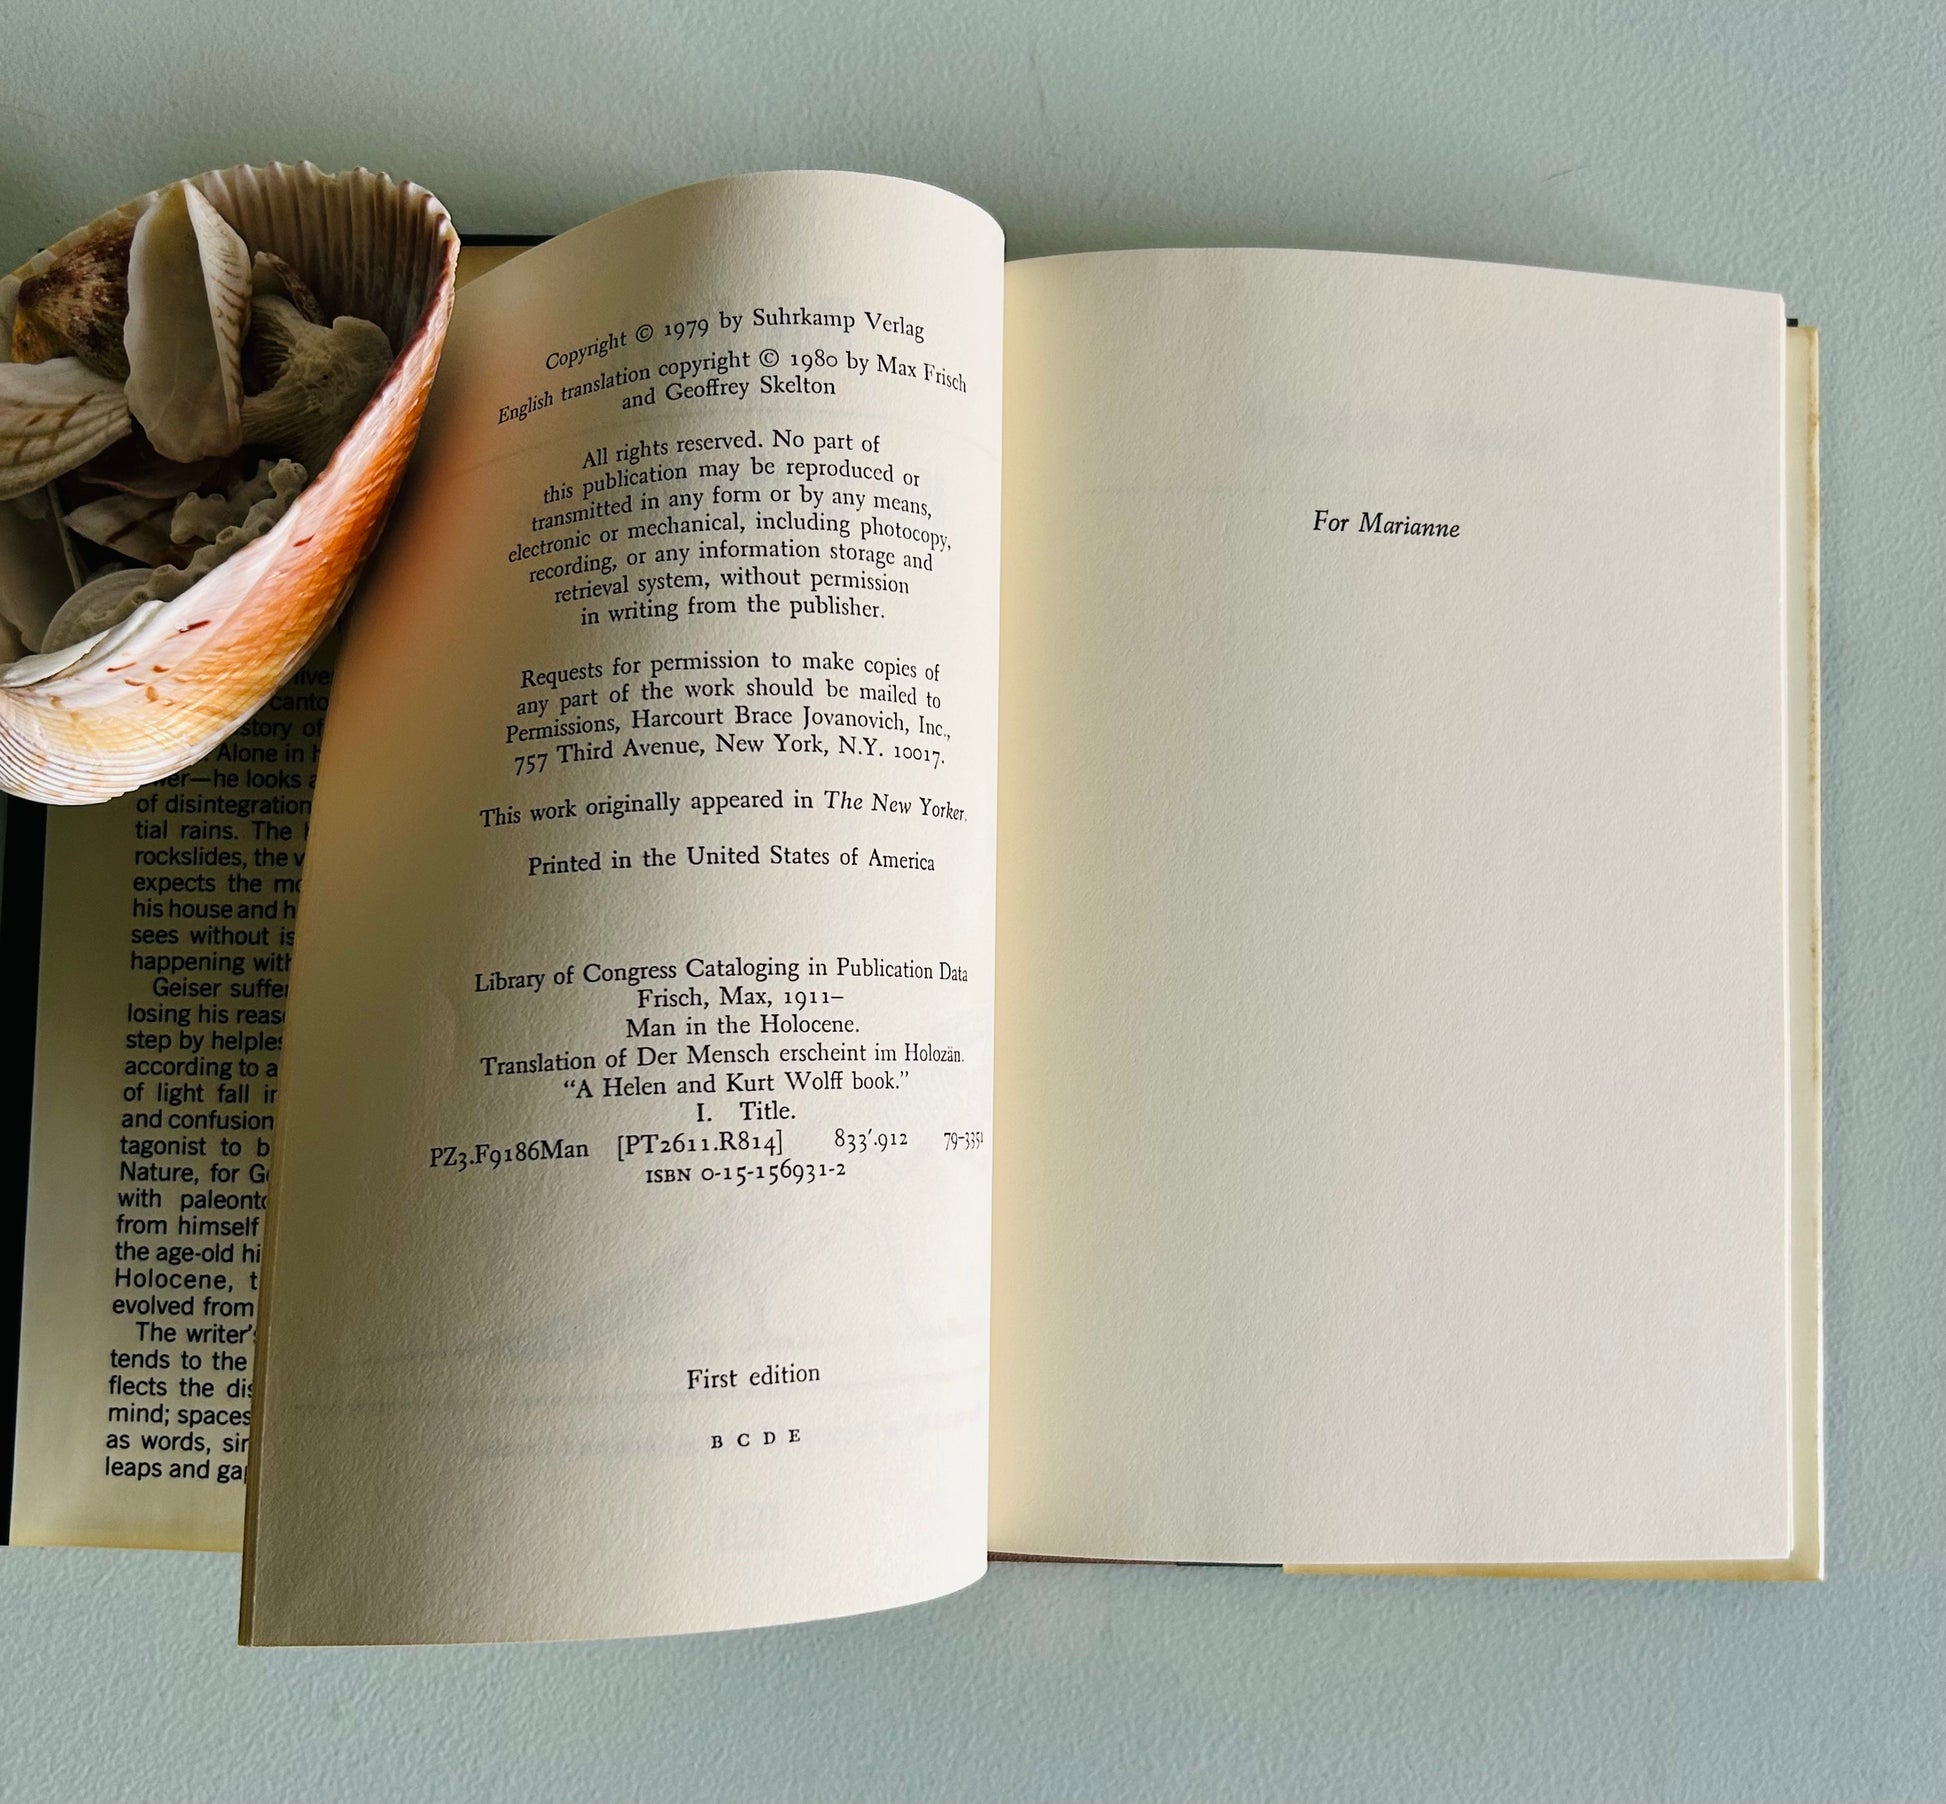 canto
story of
Alone in
—he looks
of disintegration
tial rains. The
rockslides, the
expects the
his house and
sees without
happening
Geiser
losing his
step by
according to a
of light fall
and confusion
tagonist to
Nature, for
with
from himself
the age-old
Holocene,
evolved from
The writer's
tends to the
flects the
mind; spaces
as words,
leaps and
Copyright © 1979 by Suhrkamp Verlag
English translation copyright © 1980 by Max Frisch
and Geoffrey Skelton
All rights reserved. No part of
this publication may be reproduced or
transmitted in any form or by any means,
electronic or mechanical, including photocopy,
recording, or any information storage and
retrieval system, without permission
in writing from the publisher.
Requests for permission to make copies of
any part of the work should be mailed to
Permissions, Harcourt Brace Jovanovich, Inc.,
757 Third Avenue, New York, N.Y. 10017.
This work originally appeared in The New Yorker.
Printed in the United States of America
Library of Congress Cataloging in Publication Data
Frisch, Max, 1911–
Man in the Holocene.
Translation of Der Mensch erscheint im Holozän.
“A Helen and Kurt Wolff book.”
I. Title.
PZ3.F9186Man [PT2611.R814] 833′.912 79-3351
ISBN 0-15-156931-2
First edition
B C D E
For Marianne